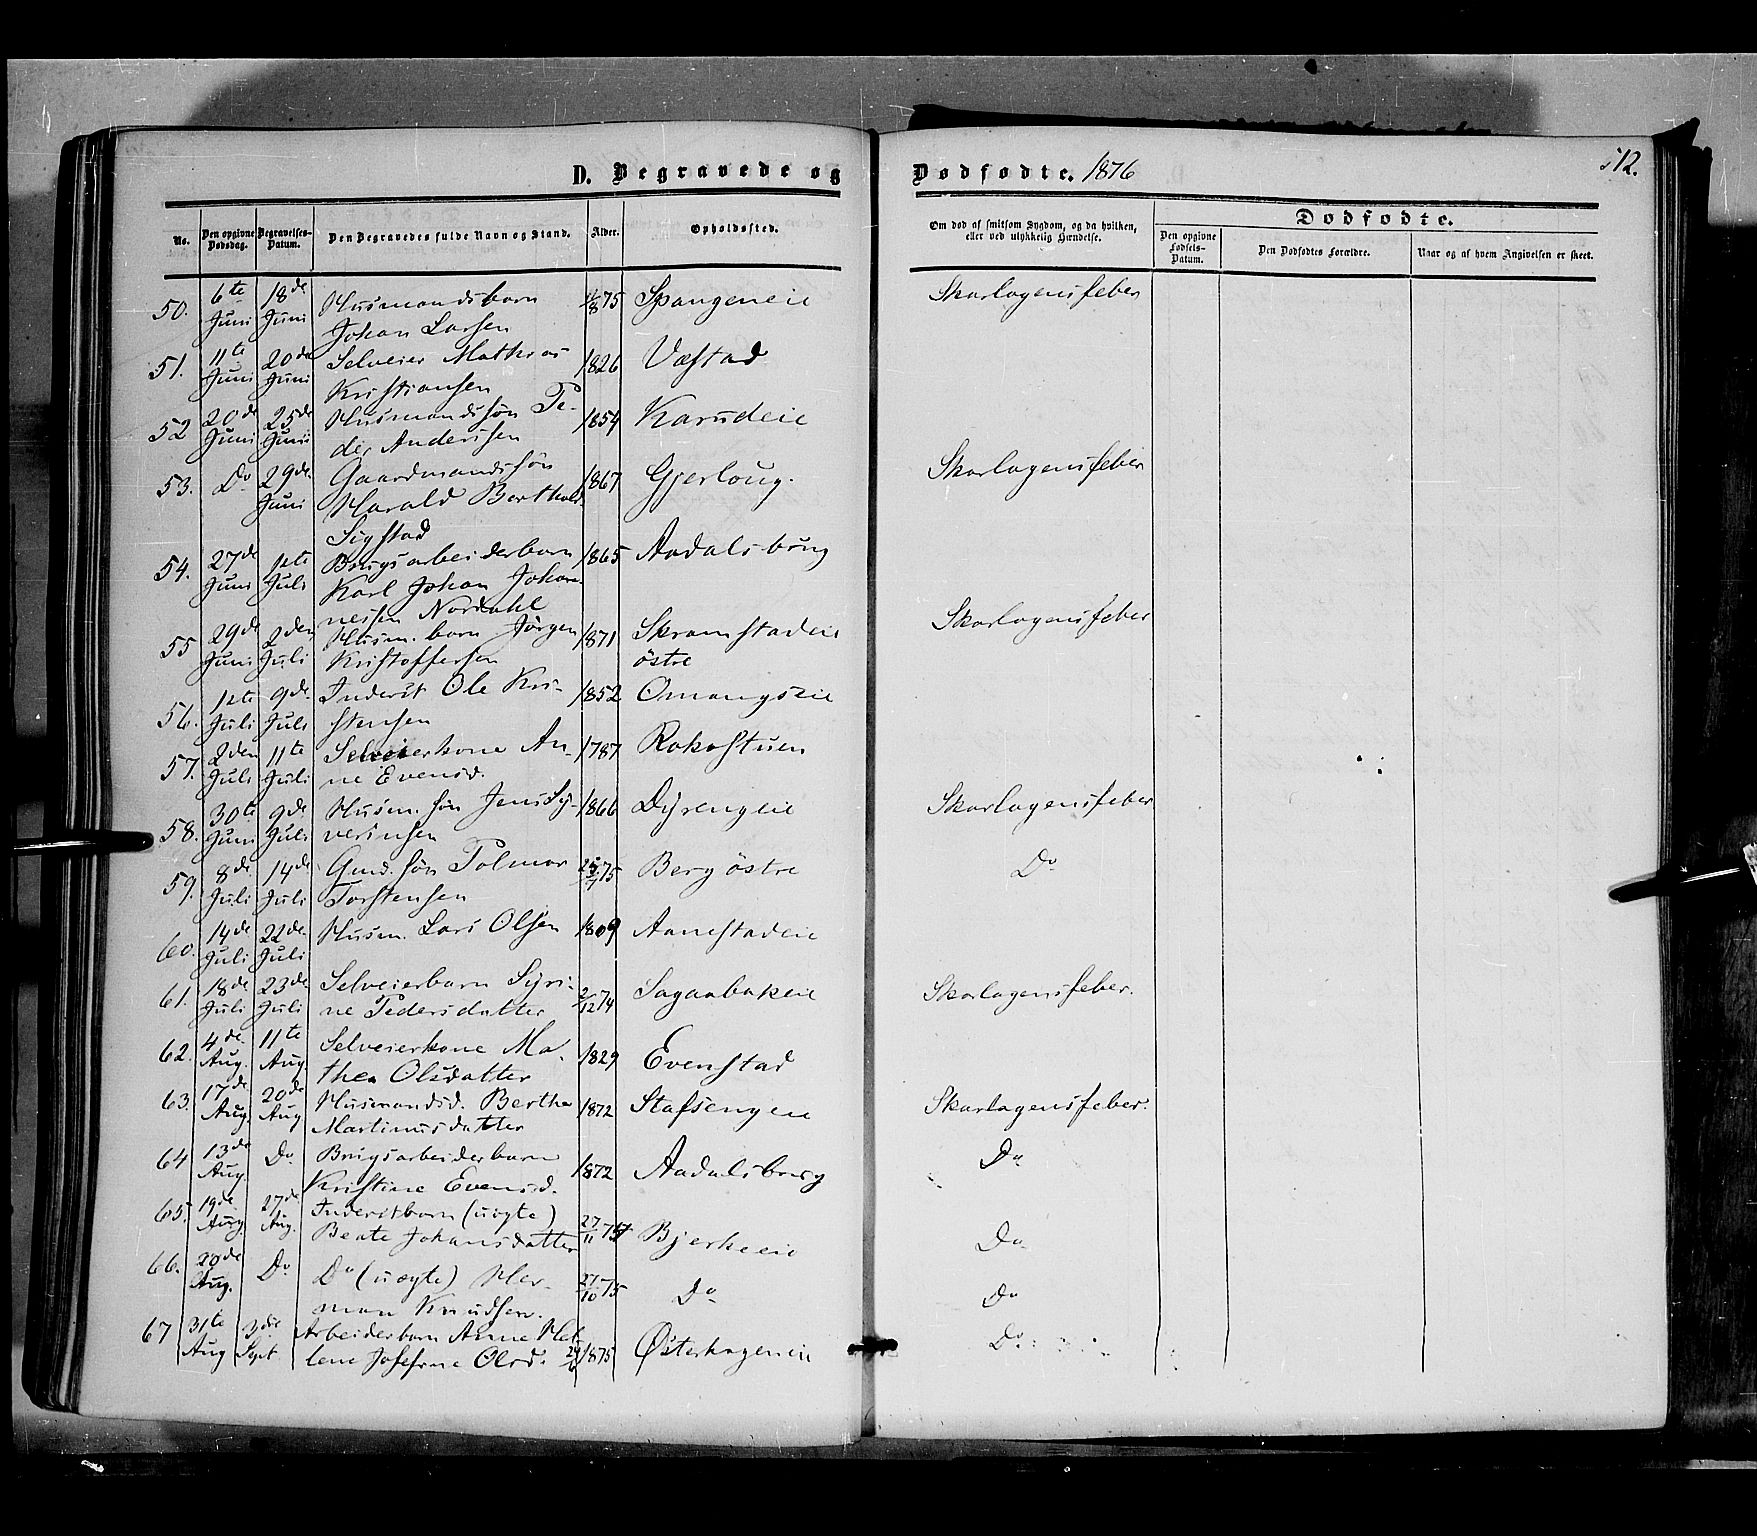 D. Begravede og Dødfødte. 1876
512.
No. Den opgivne Dødsdag. Begravelses-Datum. Den Begravedes fulde Navn og Stand. Alder. Opholdssted. Om død af smitsom Sygdom, og da hvilken, eller ved ulykkelig Hændelse. Dødfødte.
Den opgivne Fødsels-Datum. Den Dødfødtes Forældre. Naar og af hvem Angivelsen er skeet.
50. 6te Juni 18de Juni Husmandsbarn 75 Spangeneie Skarlagensfeber
Johan Larsen
51. 11te Juni 20de Juni Selveier Mathias 1826 Væstad
Kristiansen
52 20de Juni 25de Juni Husmandssøn Pe- 1854 Karudeie
der Andersen
53. Do 29de Juni Gaardmandssøn 1867 Gjerloug. Skarlagensfeber
Harald Berthold
Sigstad
54. 27de Juni 1ste Juli Brugsarbeiderbarn 1865 Aadalsbrug
Karl Johan Johan-
nessen Nordahl
55 29de Juni 2den Juli Husm. barn Jørgen 1871 Skramstadeie Skarlagensfeber
Kristoffersen østre
56. 1ste Juli 9de Juli Inderst Ole Kri- 1852 Omangseie
stensen
57. 2den Juli 11te Juli Selveierkone An- 1787 Rokostuen
ne Evensd.
58. 30te Juni 9de Juli Husm. søn Jens Sy- 1866 Dyrengeie Skarlagensfeber
verinsen
59. 8de Juli 14de Juli Gmd. søn Polmar 75 Berg østre Do
Torstensen
60. 14de Juli 22de Juli Husm. Lars Olsen 1809 Aamstadeie
61. 18de Juli 23de Juli Selveierbarn Syri- 2/12 74 Sagaabakeie Skarlagensfeber.
ne Pedersdatter
62. 4de Aug. 11te Aug Selveierkone Ma- 1829 Evenstad
thea Olsdatter
63. 17de Aug. 20de Aug Husmandsd. Berthe 1872 Stafsengen Skarlagensfeber.
Martinusdatter
64 13de Aug. Do Brugsarbeiderbarn 1872 Aadalsbrug Do
Kristine Evensd.
65. 19de Aug. 27de Aug. Inderstbarn (uægte) 27/11 Bjerkeeie Do
Beate Johansdatter
66. 20de Aug. Do Do (uægte) Her- 27/10 75 Do Do
man Knudsen.
67 31te Aug 3die Sept Arbeiderbarn Anne He- 1875 Østerhageneie Do
lene Josefine Olsd.